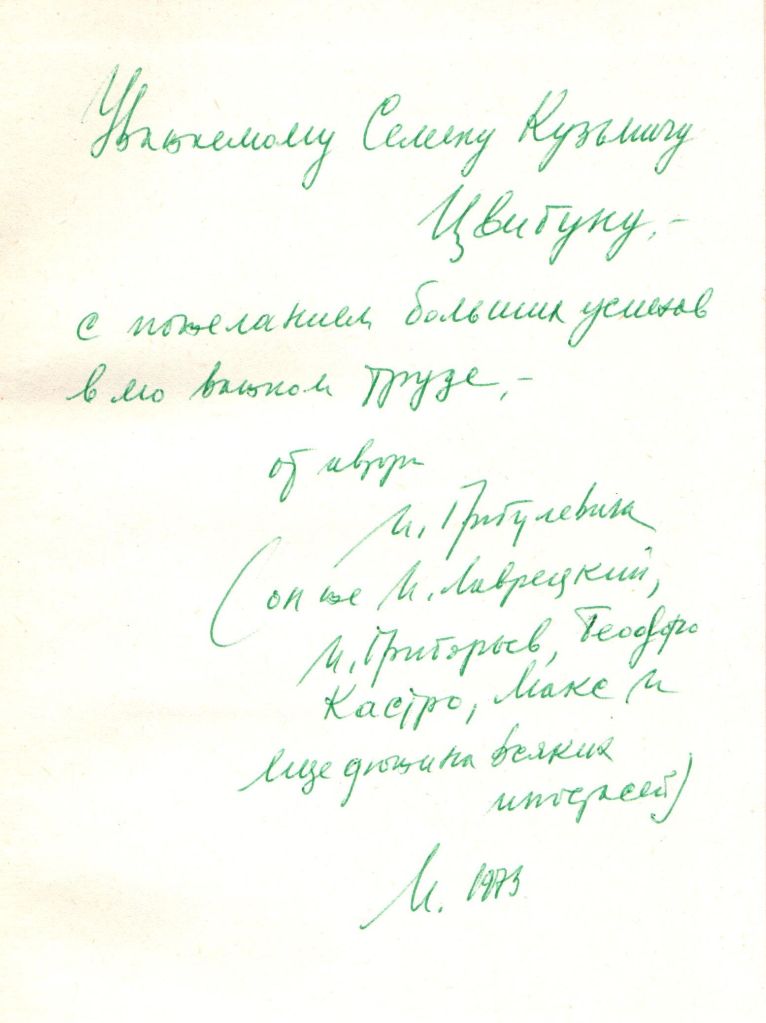 Уважаемому Семену Кузьмичу
Цвигуну, –
с пожеланием больших успехов
в его важном труде, –
от автора
И. Григулевича
(он же И. Лаврецкий,
И. Григорьев, Теодоро
Кастро, Макс и
еще дюжина всяких
ипостасей)
М. 1973